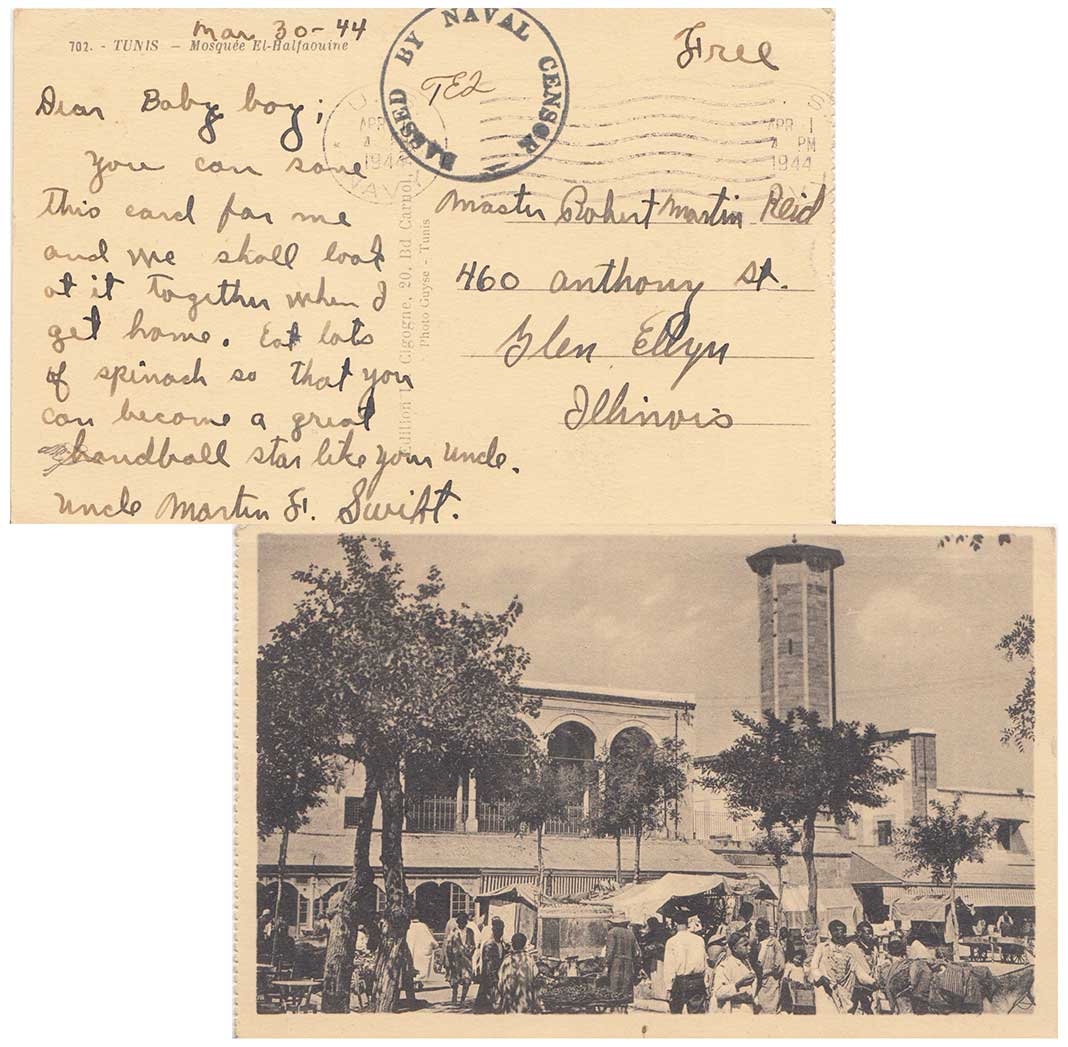 Mar 30-44
702. - TUNIS - Mosquée El-Halfaouine
PASSED BY NAVAL CENSOR
Free
Dear Baby boy;
You can save
this card for me
and we shall look
at it together when I
get home. Eat lots
of spinach so that you
can become a great
handball star like your uncle.
Uncle Martin F. Swift.
U.S. NAVY
APR 1
PM
1944
S
APR 1
4 PM
1944
Cigogne, 20, Bd Carnot,
Photo Guyse - Tunis
Master Robert Martin Reid
460 Anthony St.
Glen Ellyn
Illinois